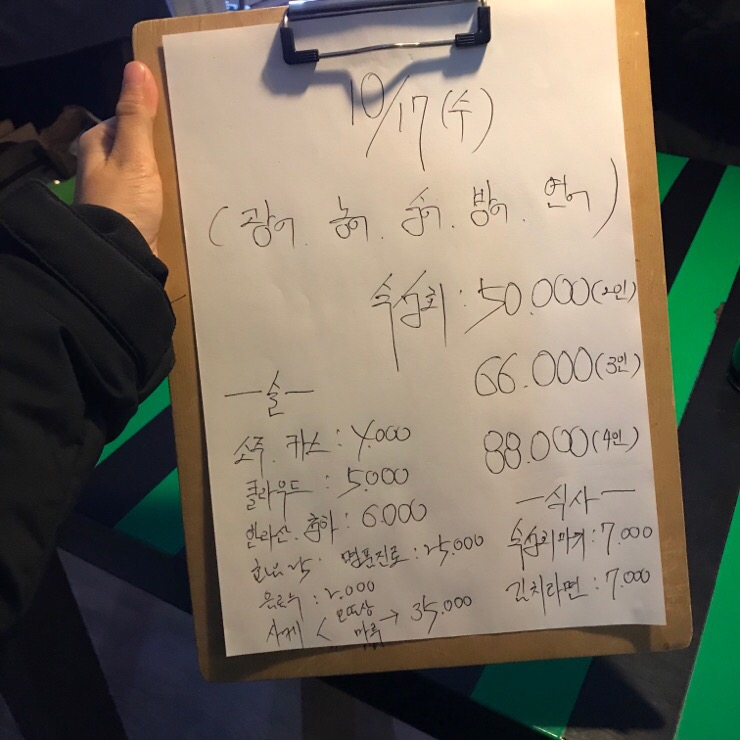 10/17(수)
(광어. 농어. 숭어. 방어. 연어)
숙성회 : 50.000(2인)
66.000(3인)
88.000(4인)
-술-
소주. 카스 : 4.000
클라우드 : 5.000
한라산. 청하 : 6.000
화요25. 명품진로 : 25.000
음료수 : 2.000
사케 < 오또상
마루 → 35.000
-식사-
숙성후리마끼 : 7.000
김치라면 : 7.000